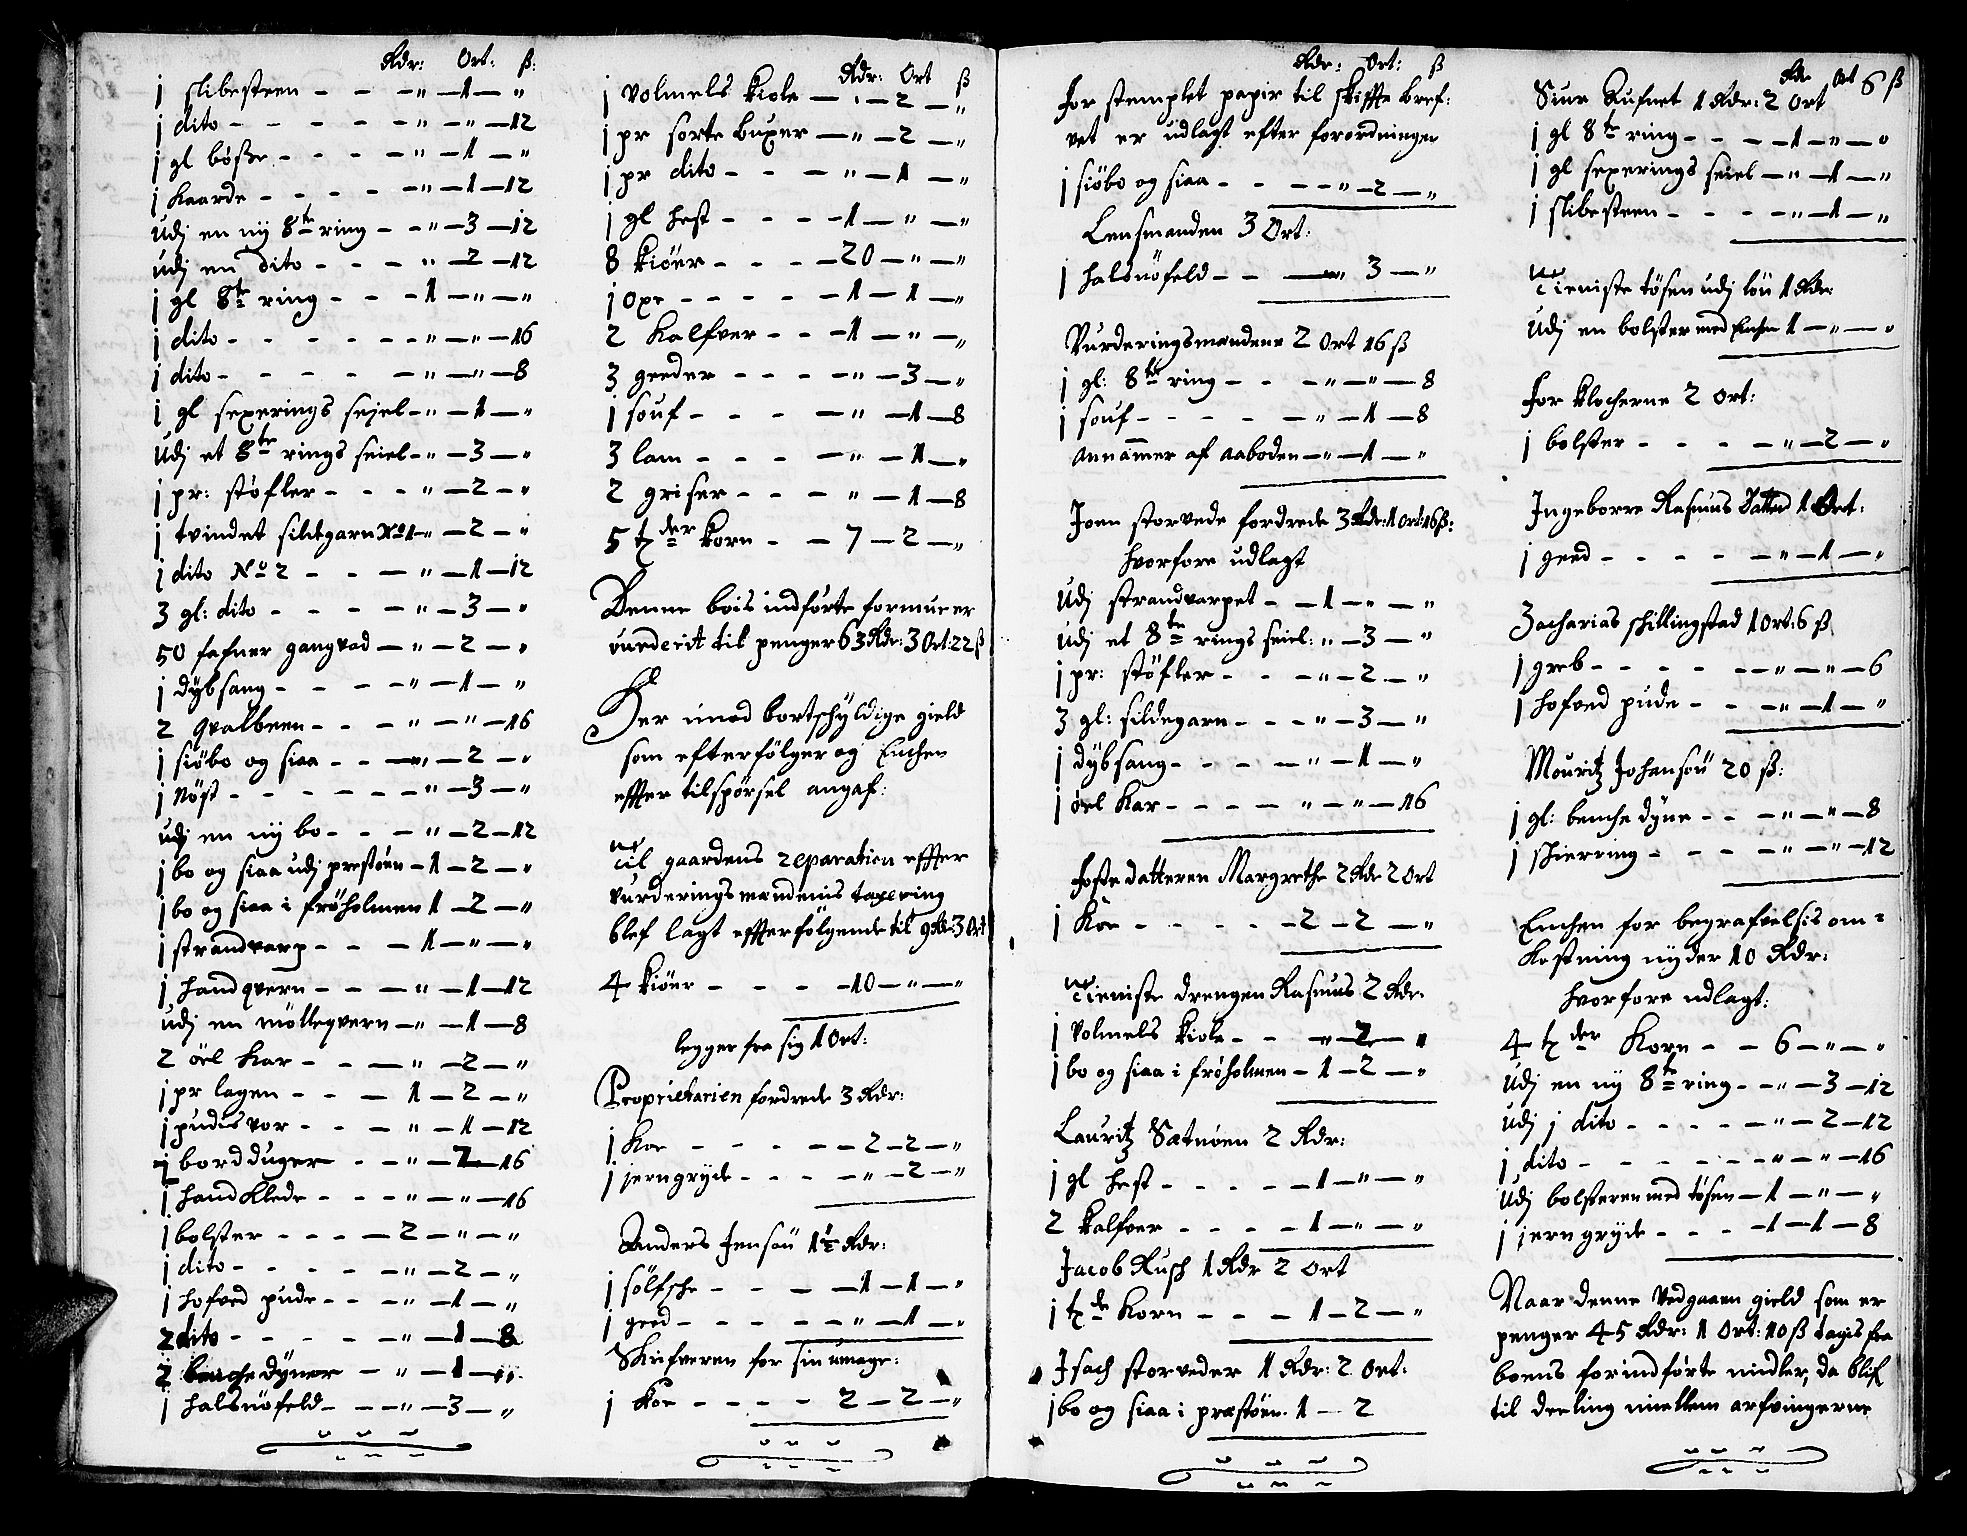 Rdr: Ort: ß:
1 slibesteen - - - " - 1 - "
1 dito - - - - - " - " - 12
1 gl bøsse - - - - " - 1 - "
1 Kaarde - - - - " - 1 - 12
Udj en nÿ 8te ring - - " - 3 - 12
udj en dito - - - - " - 2 - 12
1 gl 8te ring - - - 1 - " - "
1 dito - - - - - - " - " - 16
1 dito - - - - - " - " - 8
1 gl sexerings sejel - " - 1 - "
Udj et 8te rings seiel - " - 3 - "
1 pr: støfler - - - " - 2 - "
1 tvindet sildegarn No 1 - " - 2 - "
1 dito No 2 - - - " - 1 - 12
3 gl: dito - - - - " - 3 - "
50 fafner gangvad - " - 2 - "
1 dÿbsang - - - - " - 1 - "
2 qvalbeen - - - " - " - 16
1 siøbo og siaa - - - " - 2 - "
1 Nøst - - - - - - " - 3 - "
udj en nÿ bo - - - " - 2 - 12
1 bo og siaa udj prestøen - 1 - 2 - "
1 bo og siaa i frøholmen 1 - 2 - "
1 strandvarp - - - 1 - " - "
1 handqvern - - - " - 1 - 12
udj en mølleqvern - " - 1 - 8
2 øel Kar - - - " - 2 - "
1 pr lagen - - - 1 - 2 - "
1 pudisvor - - - " - 1 - 12
1 bordduger - - " - 2 - 16
1 handklede - - - " - " - 16
1 bolster - - - 2 - " - "
1 dito - - - - - " - 2 - "
1 hofved pude - - " - 1 - "
2 dito - - - - - " - 1 - 8
2 benchedÿner - " - 1 - "
1 halsnøfeld - - " - 3 - "
Rdr: Ort ß
1 Volmels Kiole - " - 2 - "
1 pr sorte buxer - " - 2 - "
1 pr dito - - - " - 1 - "
1 gl hest - - - - 1 - " - "
8 kiøer - - - - 20 - " - "
1 Oxe - - - - - 1 - 1 - "
2 Kalfver - - - 1 - " - "
3 geeder - - - - " - 3 - "
1 souf - - - - " - 1 - 8
3 lam - - - - " - 1 - "
2 griser - - - " - 1 - 8
5 tder Korn - - 7 - 2 - "
Denne bois indførte formue er
vurderit til penger 63 Rdr: 3 Ort: 22 ß
Her imod bortschÿldige gield
som efterfølger og Enchen
effter tilspørsel angaf:
Til gaardens reparation effter
vurderingsmændenis taxering
blef lagt effterfølgende til 9 Rdr 3 Ort
4 kiøer - - - - 10 - " - "
legger fra sig 1 Ort:
Proprietarien fordrede 3 Rdr:
1 Koe - - - - - 2 - 2 - "
1 jerngrÿde - - - - " - 2 - "
Anders Jensøn 1½ Rdr:
1 sølfsche - - - - 1 - 1 - "
1 geed - - - - - " - 1 - "
Skrifveren for sin umage:
1 Koe - - - - 2 - 2 - "
Rdr: Ort: ß
For stemplet papir til skiffte bref-
vet er udlagt efter forordningen
1 siøbo og siaa - - - " - 2 - "
Lensmanden 3 Ort:
1 halsnøfeld - - - " 3 - "
Vurderingsmændene 2 Ort 16 ß
1 gl: 8te ring - - - " - " - 8
1 souf - - - - - " - 1 - 8
annammer af aaboden - " - 1 - "
Joen storvede fordrede 3 Rdr: 1 Ort: 16 ß:
hvorfore udlagt
Udj strandvarpet - - 1 - " - "
udj et 8te rings seiel: " - 3 - "
1 pr: støfler - - - " - 2 - "
3 gl: sildegarn - - - " - 3 - "
1 dÿbsang - - - - " - 1 - "
1 øel Kar - - - - " - " - 16
Fosterdatteren Margrethe 2 Rdr 2 Ort
1 Koe - - - - - 2 - 2 - "
Tieniste drengen Rasmus 2 Rdr:
1 Volmels kiole - - " - 2 - "
1 bo og siaa i frøholmen - 1 - 2 - "
Lauritz Sætnøen 2 Rdr:
1 gl hest - - - - - 1 - " - "
2 Kalfver - - - - 1 - " - "
Jacob Rusch 1 Rdr 2 Ort
1 tde Korn - - - 1 - 2 - "
Isach storveder 1 Rdr: 2 Ort:
1 bo og siaa i prestøen. 1 - 2
Rdr Ort ß
Siur Rusnet 1 Rdr: 2 Ort 6
1 gl 8te ring - - - - 1 - " - "
1 gl sexerings seiel - " - 1 - "
1 slibesteen - - - - " - 1 - "
Tieniste tøsen udj løn 1 Rdr:
Udj en bolster med Enchen 1 - " - "
For Klocherne 2 Ort:
1 bolster - - - - " - 2 - "
Ingeborre Rasmus datter 1 Ort:
1 geed - - - - - " - 1 - "
Zacharias schillingstad 1 Ort: 6 ß
1 greb - - - - - " - " - 6
1 hofved pude - - - " - 1 - "
Mouritz Johansøn 20 ß:
1 gl: benche dÿne - - " - " - 8
1 schierring - - - - " - " - 12
Enchen for begrafvelsis om-
kostning nÿder 10 Rdr:
hvorfore udlagt:
4 tder Korn - - 6 - " - "
Udj en nÿ 8te ring - - " - 3 - 12
Udj 1 dito - - - - - " - 2 - 12
1 dito - - - - - - " - " - 16
Udj bolsteren med tøsen - 1 - " - "
1 jerngrÿde - - - 1 - 1 - 8
Naar denne Vedgaaen gield som er
penger 45 Rdr: 1 Ort: 10 ß tagis fra
boens forindførte midler, da blif
til deeling imellem arfvingerne